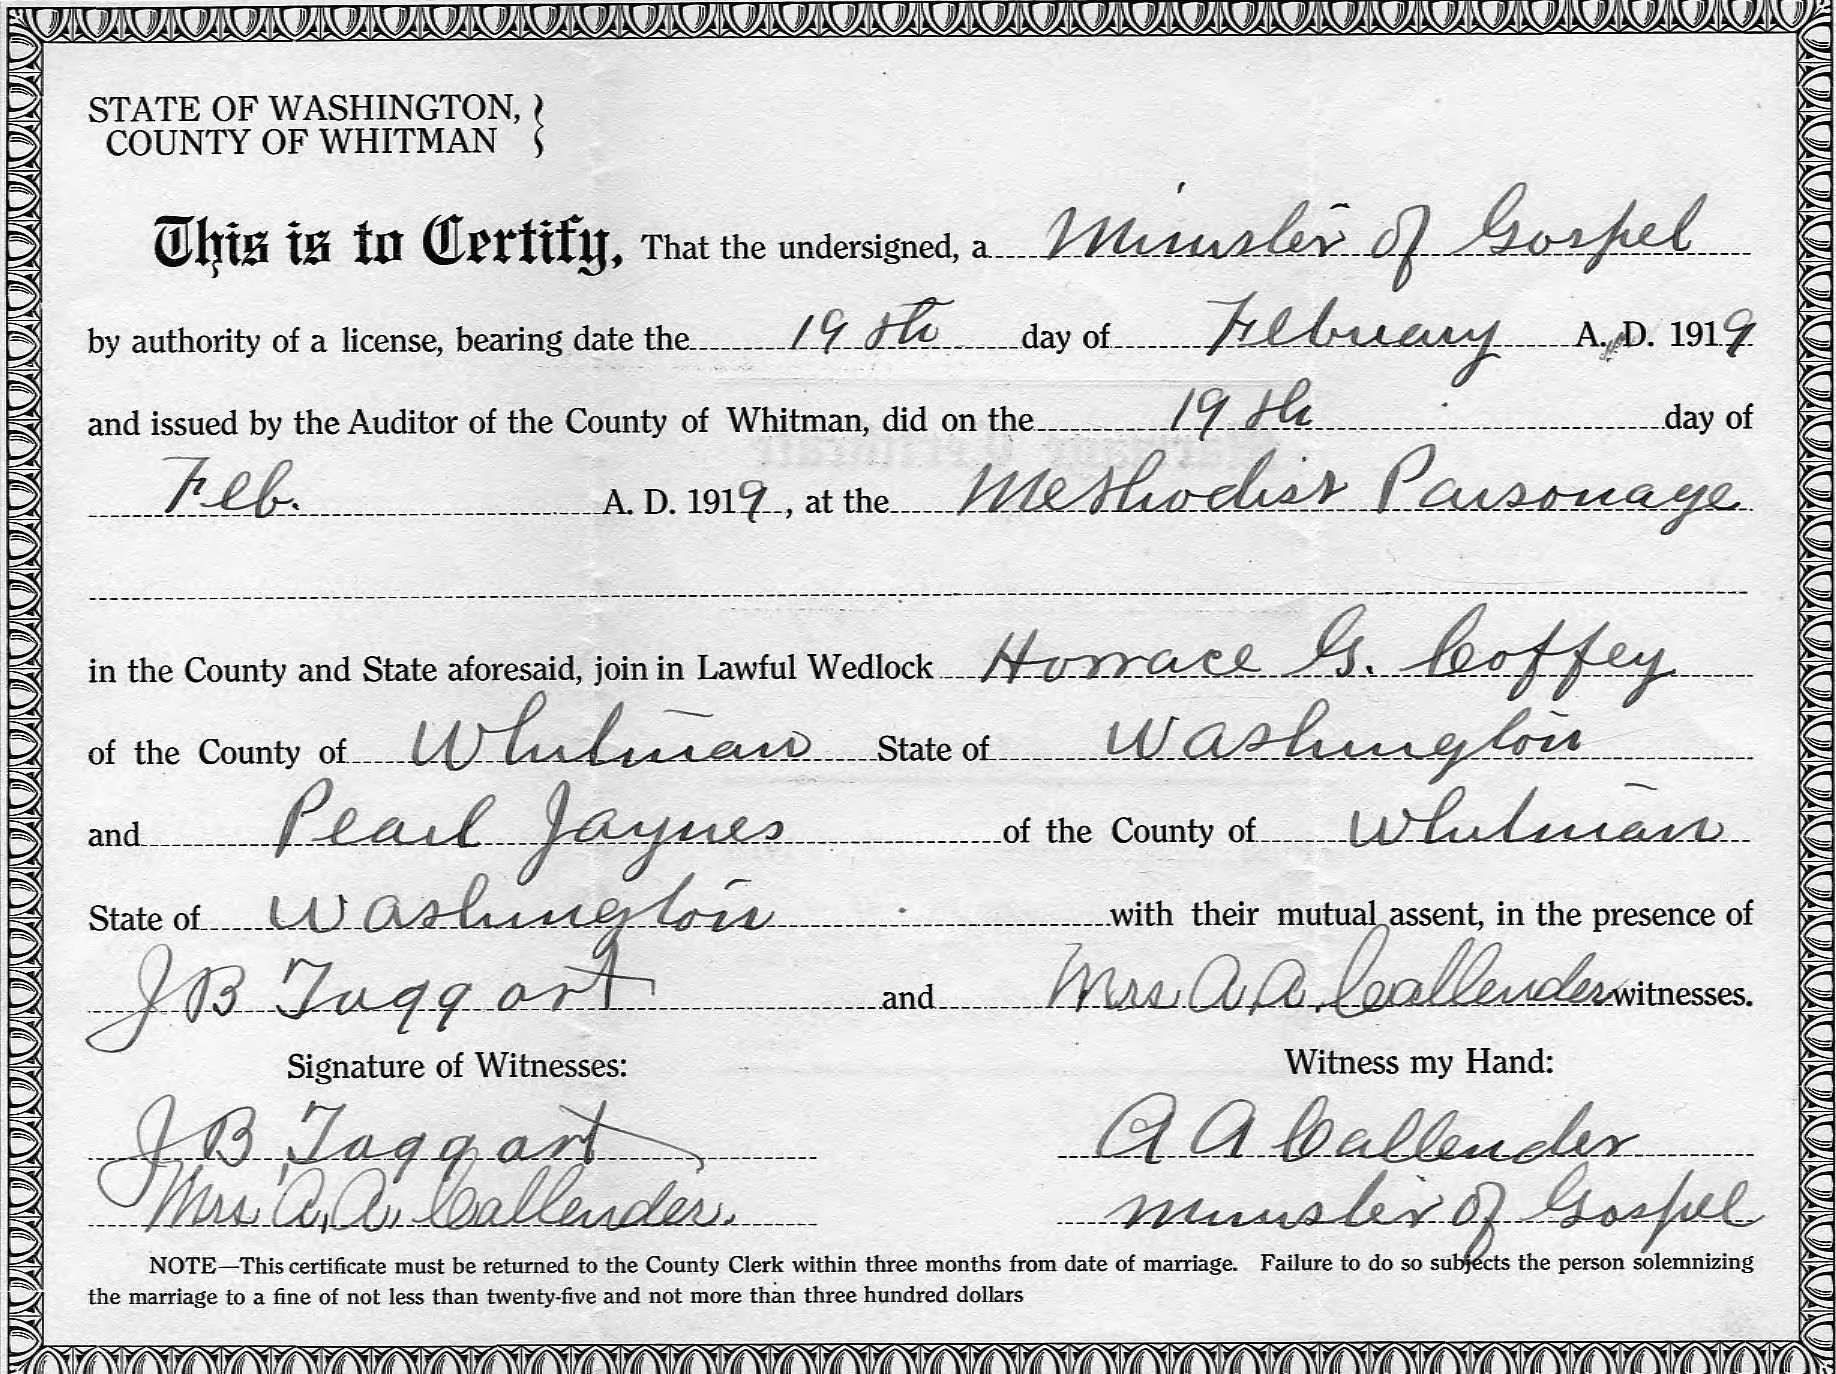 STATE OF WASHINGTON,
COUNTY OF WHITMAN
This is to Certify, That the undersigned, a Minister of Gospel
by authority of a license, bearing date the 19th day of February A. D. 1919
and issued by the Auditor of the County of Whitman, did on the 19th day of
Feb. A. D. 1919, at the Methodist Parsonage
in the County and State aforesaid, join in Lawful Wedlock Horrace G. Coffey
of the County of Whitman State of Washington
and Pearl Jaynes of the County of Whitman
State of Washington with their mutual assent, in the presence of
J B Taggart and Mrs A. A. Callender witnesses.
Signature of Witnesses: Witness my Hand:
J B Taggart A A Callender
Mrs. A. A. Callender. Minister of Gospel
NOTE—This certificate must be returned to the County Clerk within three months from date of marriage. Failure to do so subjects the person solemnizing
the marriage to a fine of not less than twenty-five and not more than three hundred dollars